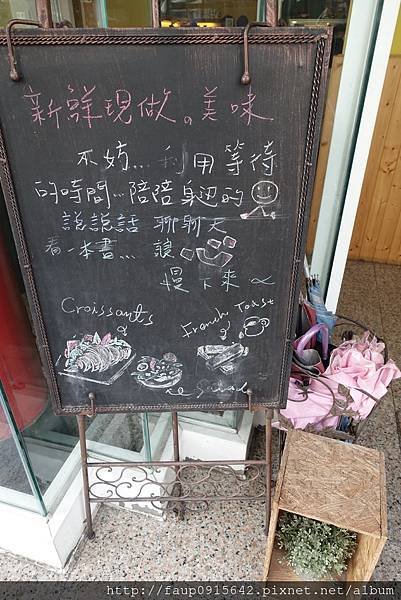 新鮮現做。美味
不妨... 利用等待
的時間...陪陪身邊的
說說話 聊聊天
看一本書... 讓
慢下來~
Croissants
French Toast
http://faup0915642.pixnet.net/blog